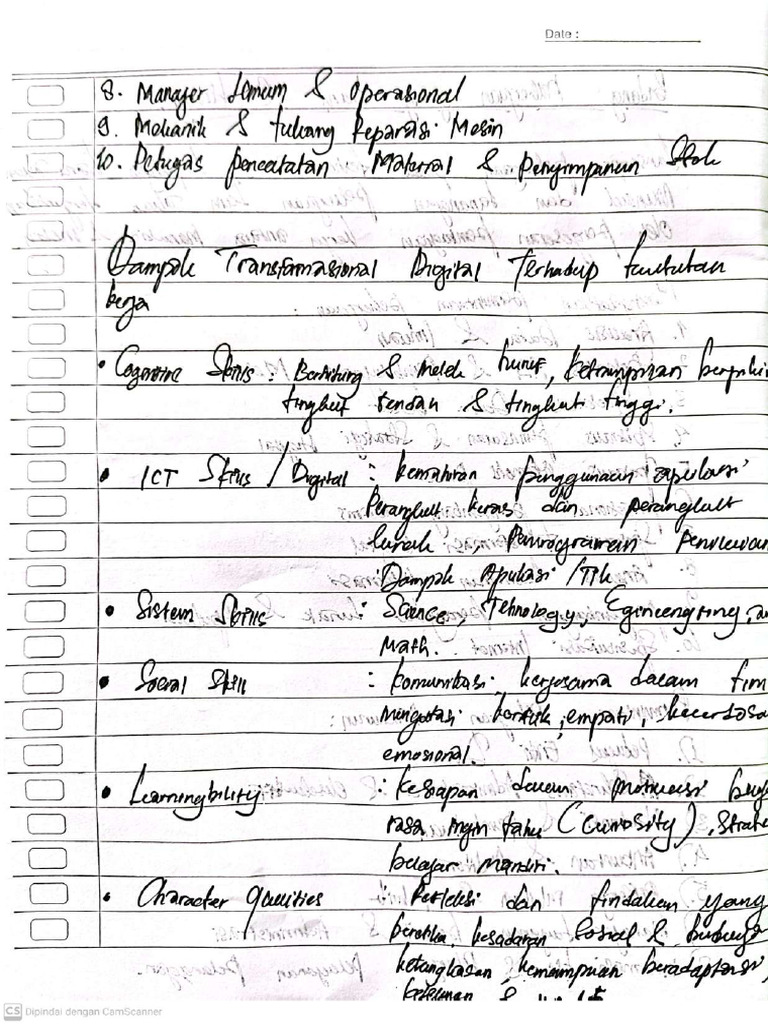 Date :
8. Manajer Umum & Operasional
9. Mekanik & tukang Reparasi Mesin
10. Petugas pencatatan Material & Penyimpanan Stok
Dampak Transfamasional Digital Terhadap tuntutan
kerja
• Cognitive Skills : Berhitung & melek huruf, ketrampilan berpiki
tingkat rendah & tingkat tinggi.
• ICT Skills / Digital : kemahiran penggunaan
Perangkat keras dan perangkat
lunak. Pemrograman
Dampak Aplikasi / TIk
• Sistem Skills : Science, Tehnology, Egineengring, an
Math.
• Social Skill : komunikasi, kerjasama dalam tim
empati, kecerdasa
emosional.
• Learningbility : kesiapan dalam
rasa ingin tahu (Curosity), strate
belajar mandiri.
• Character qualities Refleksi dan tindakan yang
beretika, kesadaran Sosial & buday
ketangkasan, kemampuan beradaptasi,
&
CS Dipindai dengan CamScanner